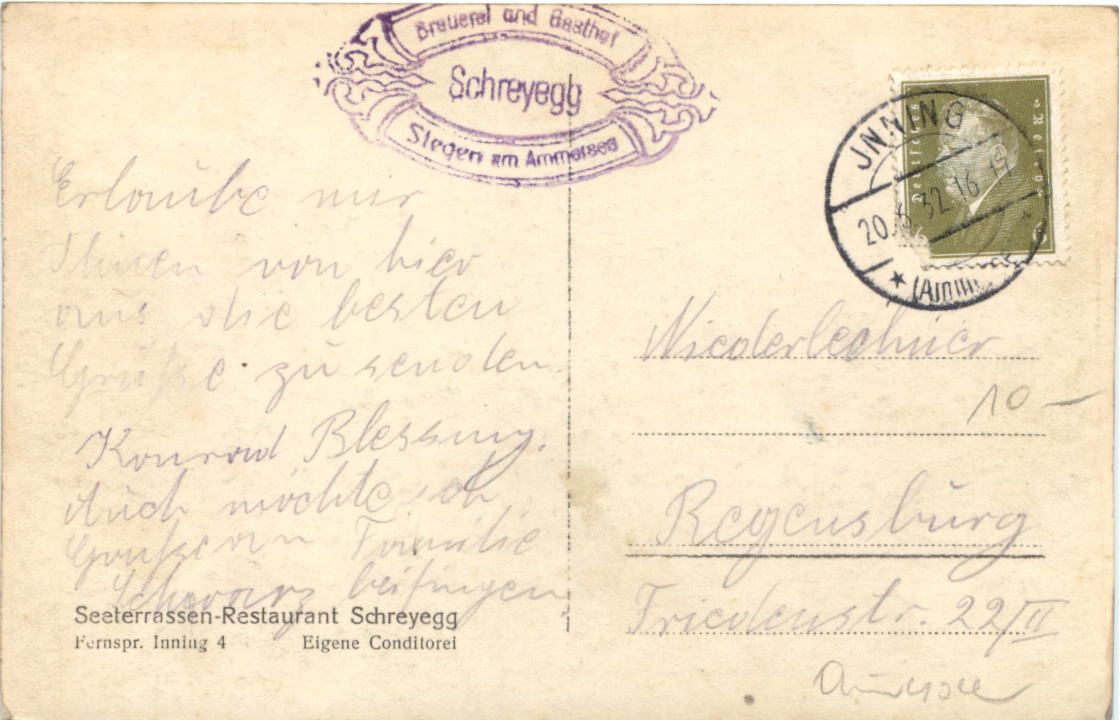 Brauerei und Gasthof
Schreyegg
Stegen am Ammersee
JNNING
20.6.32.16
(Amm
Deutsches Reich
6
Erlaube mir
Ihnen von hier
aus die besten
Grüße zu senden.
Konrad Blessing.
Auch möchte ich
Grüße an Familie
Schwarz beifügen
Seeterrassen-Restaurant Schreyegg
Fernspr. Inning 4 Eigene Conditorei
Niederlechner
10 —
Regensburg
Friedenstr. 22/II
Ammersee